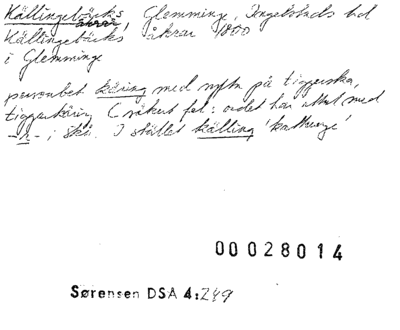 Källingebäcks åkrar, Glemminge, Ingelstads hd
Källingebäcks åkrar 1800
i Glemminge
personbet. käring med syftn på tiggerska,
tiggerkäring (säkert fel: ordet har alltid med
-r- i skå. I stället källing 'kattunge'
00028014
Sørensen DSA 4:249